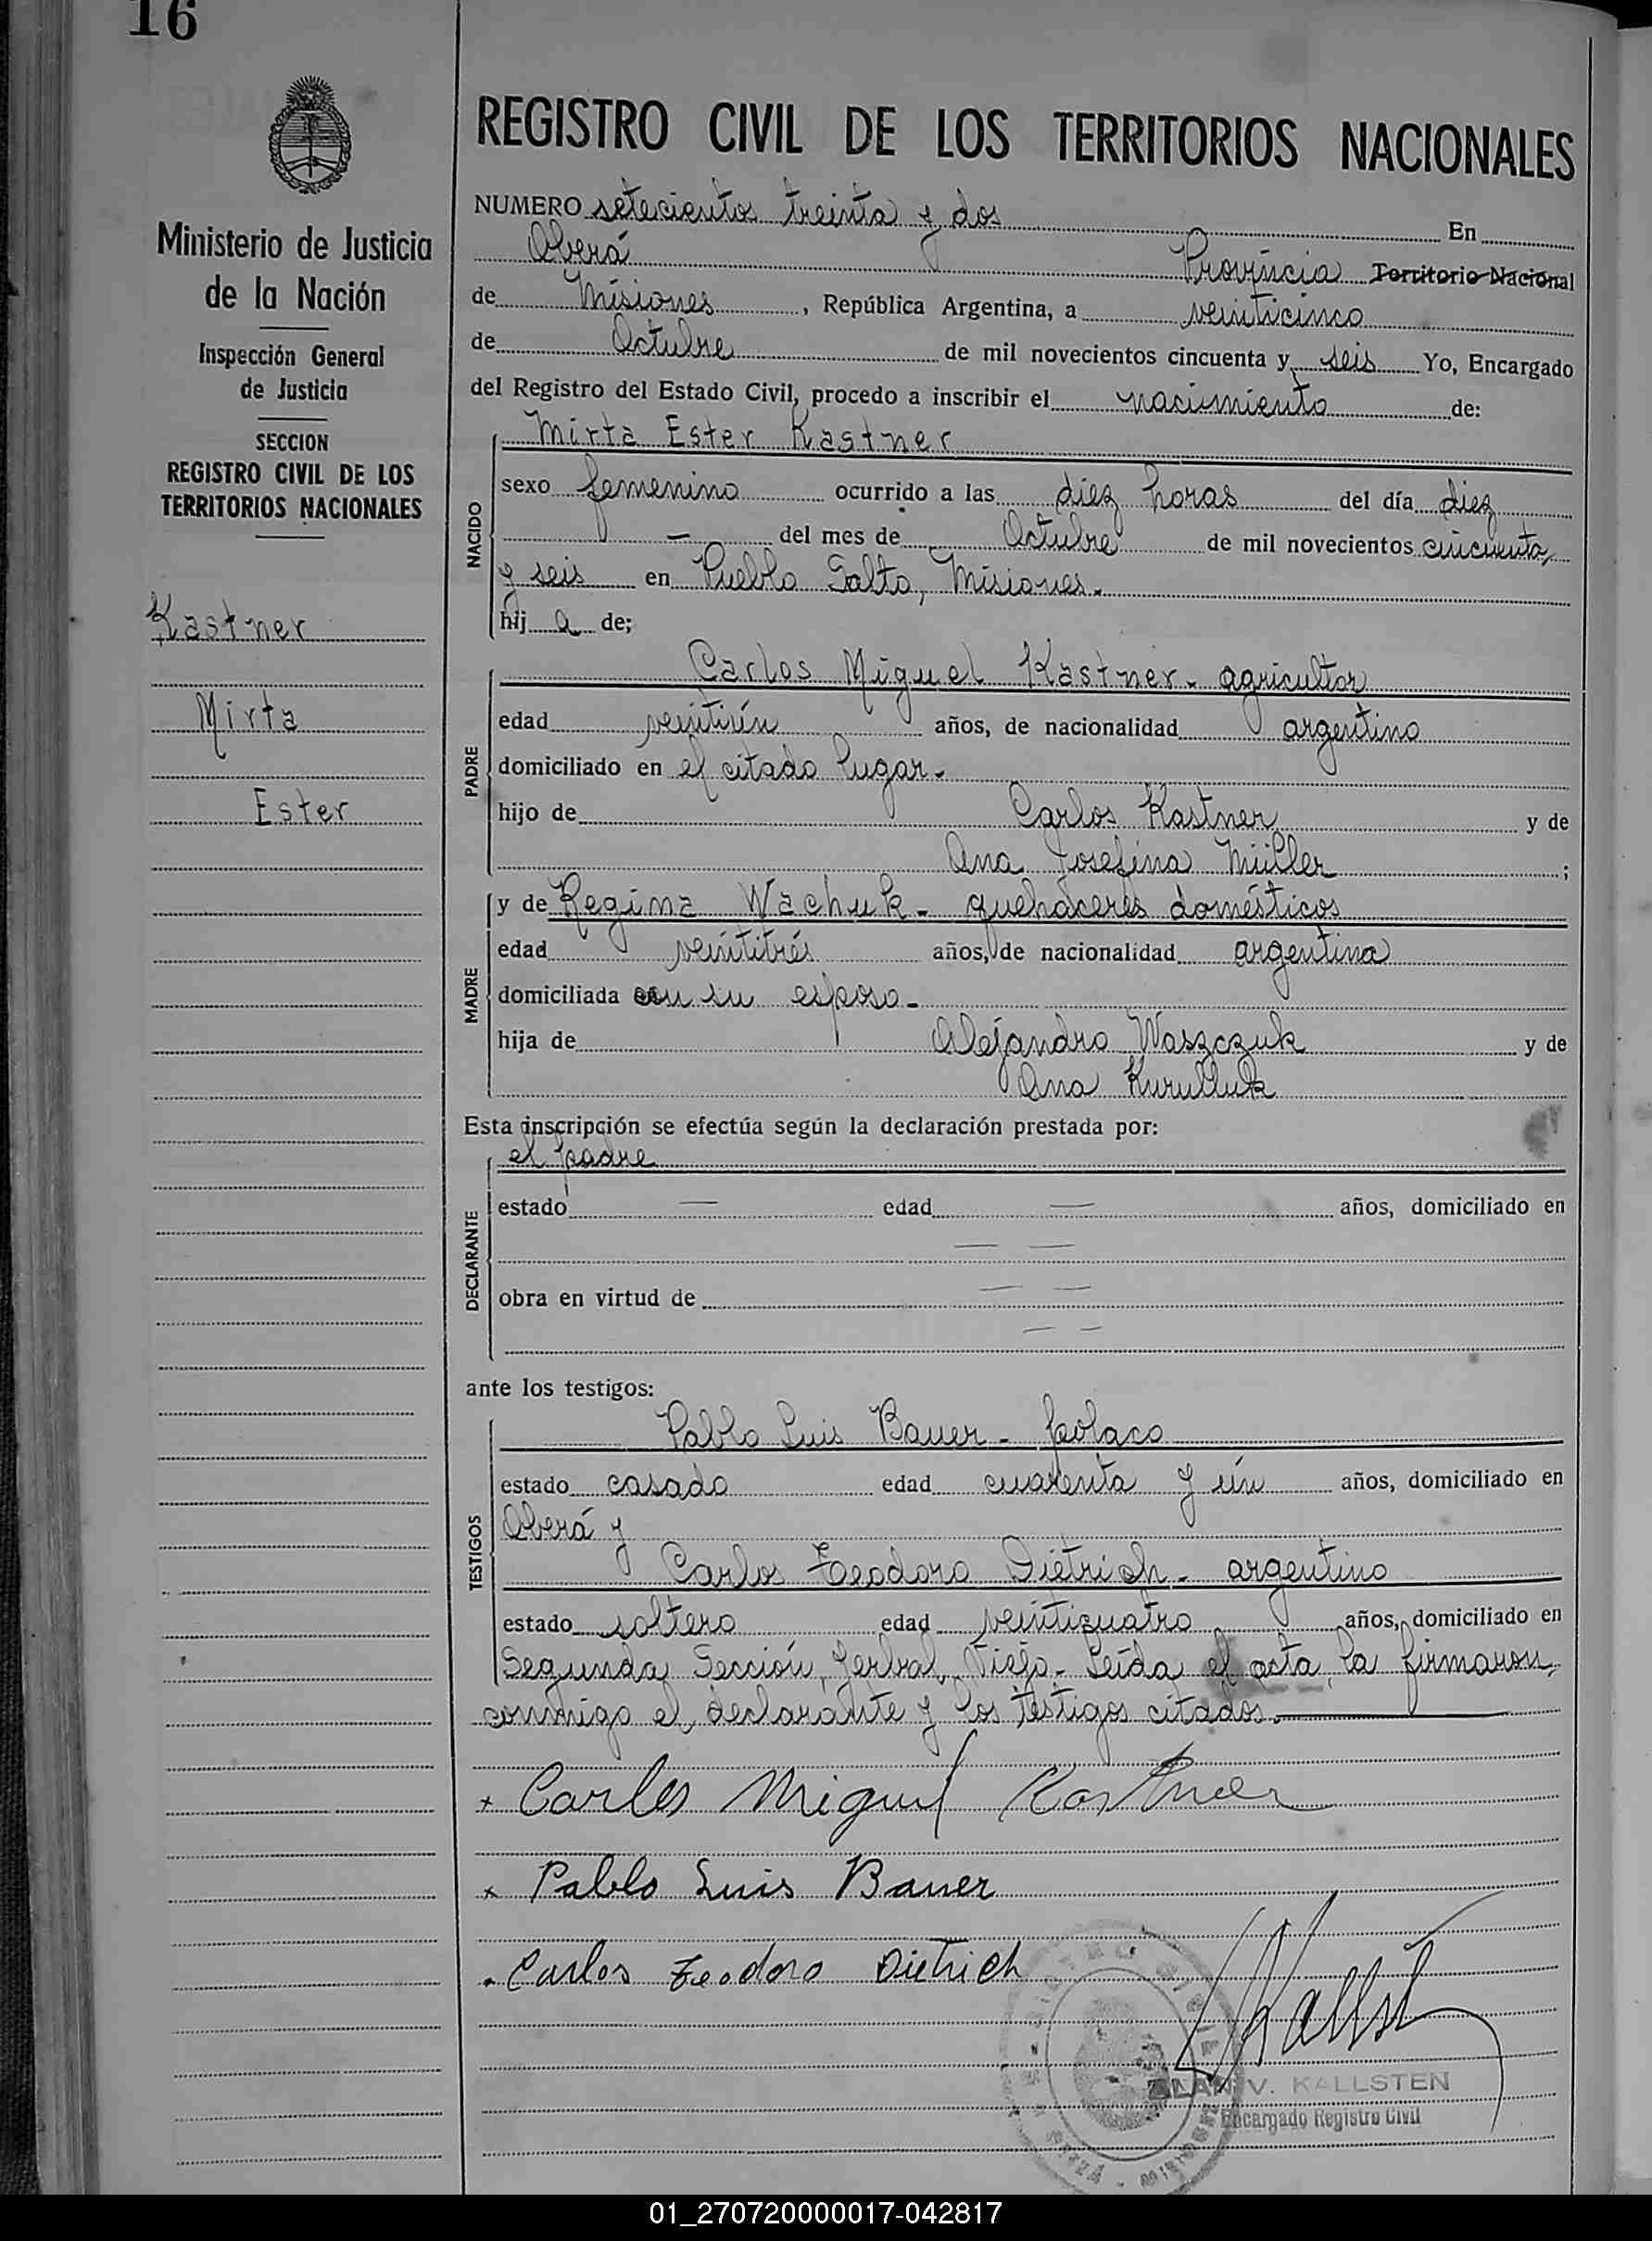 16
Ministerio de Justicia
de la Nación
Inspección General
de Justicia
SECCION
REGISTRO CIVIL DE LOS
TERRITORIOS NACIONALES
Kastner
Mirta
Ester
REGISTRO CIVIL DE LOS TERRITORIOS NACIONALES
NUMERO setecientos treinta y dos En
Oberá Provincia Territorio Nacional
de Misiones, República Argentina, a veinticinco
de Octubre de mil novecientos cincuenta y seis Yo, Encargado
del Registro del Estado Civil, procedo a inscribir el nacimiento de:
Mirta Ester Kastner
NACIDO
sexo femenino ocurrido a las diez horas del día diez
— del mes de Octubre de mil novecientos cincuenta
y seis en Pueblo Salto, Misiones.
hij a de;
Carlos Miguel Kastner - agricultor
PADRE
edad veintiún años, de nacionalidad argentino
domiciliado en el citado lugar.
hijo de Carlos Kastner y de
Ana Josefina Müller ;
y de Regina Wachuk - quehaceres domésticos
MADRE
edad veintitrés años, de nacionalidad argentina
domiciliada con su esposo.
hija de Alejandro Waszczuk y de
Ana Kurulluk
Esta inscripción se efectúa según la declaración prestada por:
el padre
DECLARANTE
estado — edad — años, domiciliado en
— —
obra en virtud de — —
— —
ante los testigos:
Pablo Luis Bauer - polaco
TESTIGOS
estado casado edad cuarenta y ún años, domiciliado en
Oberá y
Carlos Teodoro Dietrich - argentino
estado soltero edad veinticuatro años, domiciliado en
Segunda Sección, Yerbal Viejo. Leída el acta la firmaron
conmigo el declarante y los testigos citados.
x Carlos Miguel Kastner
x Pablo Luis Bauer
Carlos Teodoro Dietrich
V. KALLSTEN
Encargado Registro Civil
01_270720000017-042817